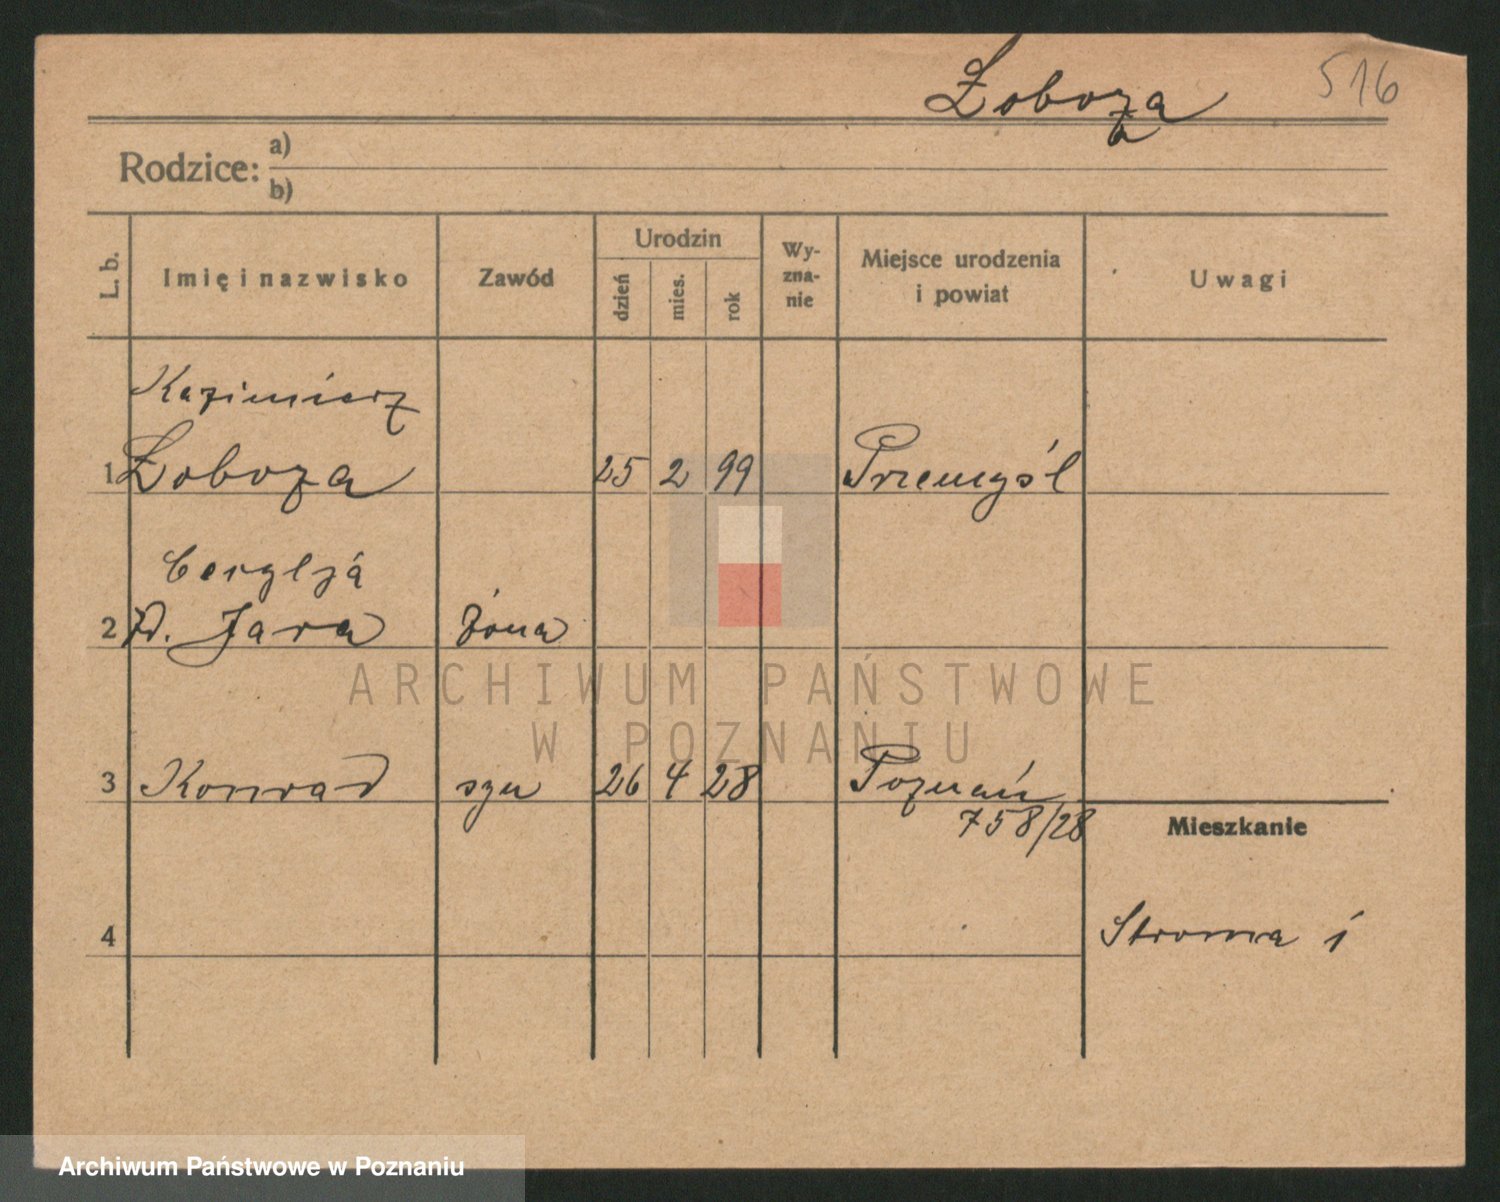 Łoboza 516
Rodzice: a)
b)
L. b. Imię i nazwisko Zawód Urodzin dzień mies. rok Wy-zna-nie Miejsce urodzenia i powiat Uwagi
Kazimierz
1 Łoboza 25 2 99 Przemyśl
2 Jara żona
3 Konrad syn 26 4 28 Poznań
758/28
Mieszkanie
4 Stroma 1
ARCHIWUM PAŃSTWOWE
W POZNANIU
Archiwum Państwowe w Poznaniu